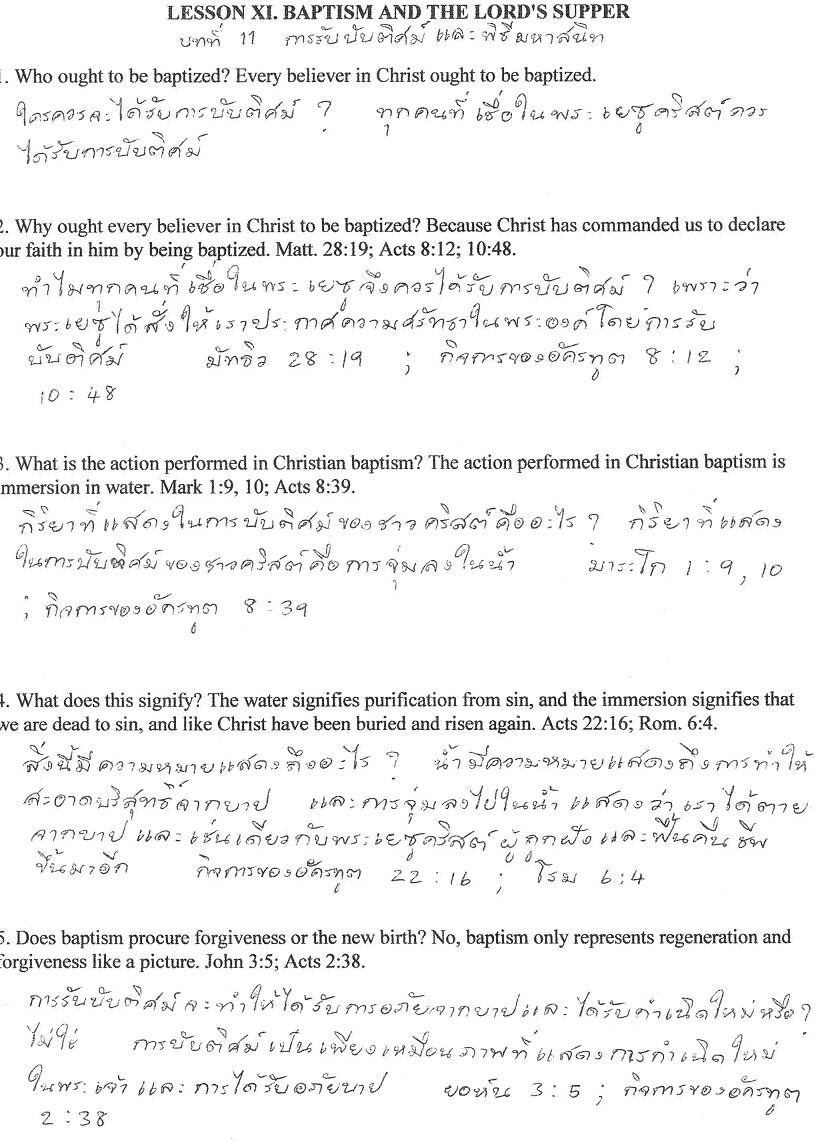 LESSON XI. BAPTISM AND THE LORD'S SUPPER
บทที่ 11 การรับบับติศม์ และ พิธีมหาสนิท
1. Who ought to be baptized? Every believer in Christ ought to be baptized.
ใครควรจะได้รับการบับติศม์ ? ทุกคนที่เชื่อในพระเยซูคริสต์ควร
ได้รับการบับติศม์
2. Why ought every believer in Christ to be baptized? Because Christ has commanded us to declare
our faith in him by being baptized. Matt. 28:19; Acts 8:12; 10:48.
ทำไมทุกคนที่เชื่อในพระเยซูจึงควรได้รับการบับติศม์ ? เพราะว่า
พระเยซูได้สั่งให้เราประกาศความศรัทธาในพระองค์โดยการรับ
บับติศม์ มัทธิว 28:19 ; กิจการของอัครทูต 8:12 ;
10:48
3. What is the action performed in Christian baptism? The action performed in Christian baptism is
immersion in water. Mark 1:9, 10; Acts 8:39.
กิริยาที่แสดงในการบับติศม์ของชาวคริสต์คืออะไร ? กิริยาที่แสดง
ในการบับติศม์ของชาวคริสต์คือการจุ่มลงในน้ำ มาระโก 1:9, 10
; กิจการของอัครทูต 8:39
4. What does this signify? The water signifies purification from sin, and the immersion signifies that
we are dead to sin, and like Christ have been buried and risen again. Acts 22:16; Rom. 6:4.
สิ่งนี้มีความหมายแสดงถึงอะไร ? น้ำมีความหมายแสดงถึงการทำให้
สะอาดบริสุทธิ์จากบาป และการจุ่มลงไปในน้ำแสดงว่าเราได้ตาย
จากบาป และเช่นเดียวกับพระเยซูคริสต์ ผู้ถูกฝังและฟื้นคืนชีพ
ขึ้นมาอีก กิจการของอัครทูต 22:16 ; โรม 6:4
5. Does baptism procure forgiveness or the new birth? No, baptism only represents regeneration and
forgiveness like a picture. John 3:5; Acts 2:38.
การรับบับติศม์จะทำให้ได้รับการอภัยจากบาปและได้รับกำเนิดใหม่หรือ ?
ไม่ใช่ การบับติศม์เป็นเพียงเหมือนภาพที่แสดงการกำเนิดใหม่
ในพระเจ้า และการได้รับอภัยบาป ยอห์น 3:5 ; กิจการของอัครทูต
2:38